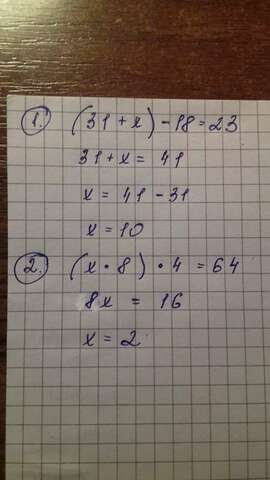 1. (31 + x) - 18 = 23
31 + x = 41
x = 41 - 31
x = 10
2. (x · 8) · 4 = 64
8x = 16
x = 2